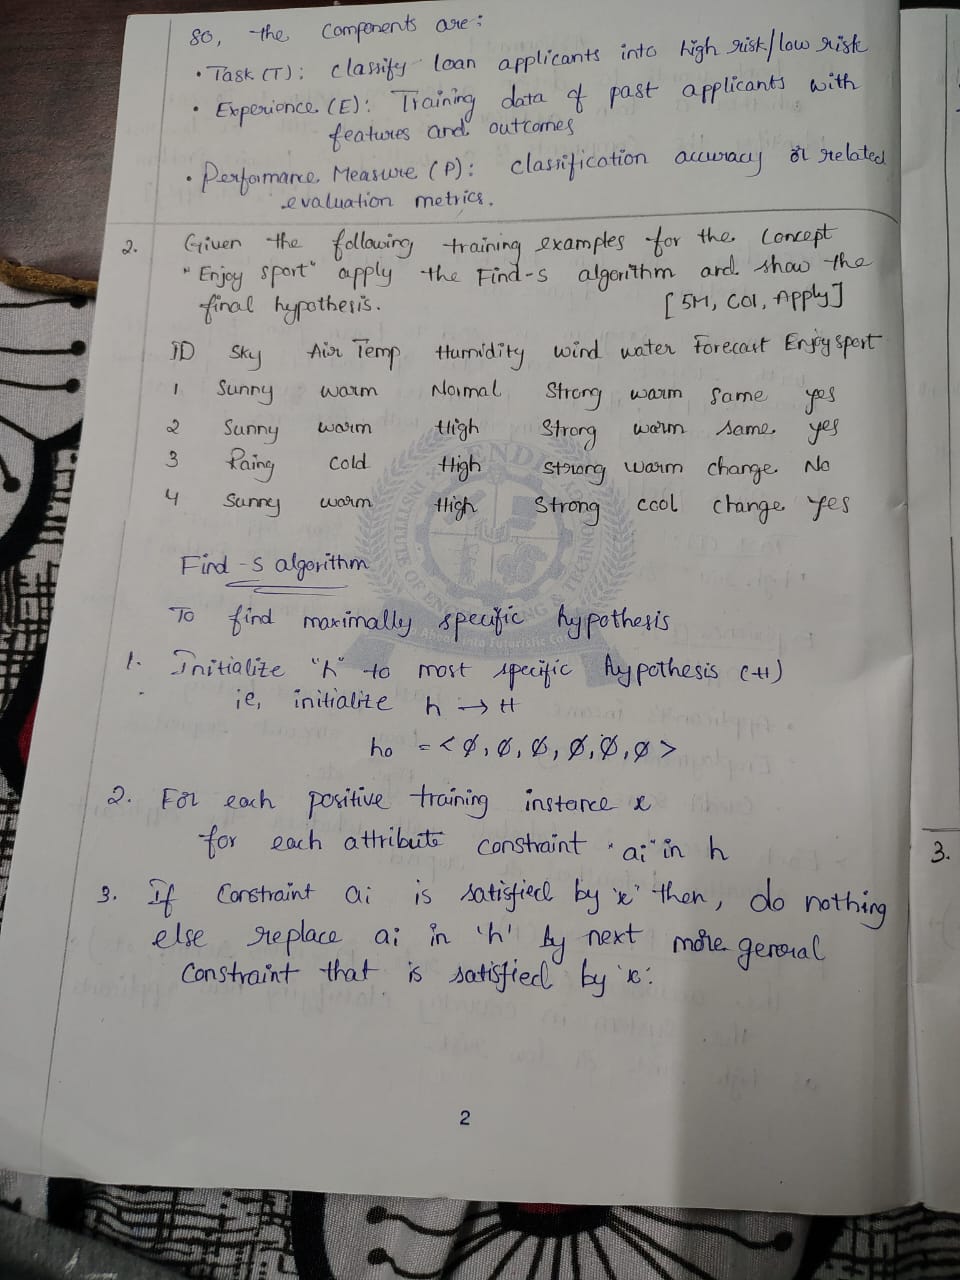 so, the components are:
• Task (T): classify loan applicants into high risk/low risk
• Experience (E): Training data of past applicants with
features and outcomes
• Performance Measure (P): classification accuracy or related
evaluation metrics.
2. Given the following training examples for the concept
"Enjoy sport" apply the Find-s algorithm and show the
final hypothesis. [5M, CO1, Apply]
ID Sky Air Temp Humidity wind water Forecast Enjoy sport
1 Sunny warm Normal Strong warm same yes
2 Sunny warm High Strong warm same yes
3 Rainy cold High strong warm change No
4 Sunney warm High Strong cool change yes
Find-s algorithm
To find maximally specific hypothesis
1. Initialize "h" to most specific hypothesis (H)
ie, initialize h → H
h0 = < ϕ, ϕ, ϕ, ϕ, ϕ, ϕ >
2. For each positive training instance x
for each attribute constraint "ai" in h
3. If Constraint ai is satisfied by 'x' then, do nothing
else replace ai in 'h' by next more general
Constraint that is satisfied by 'x'.
2
3.